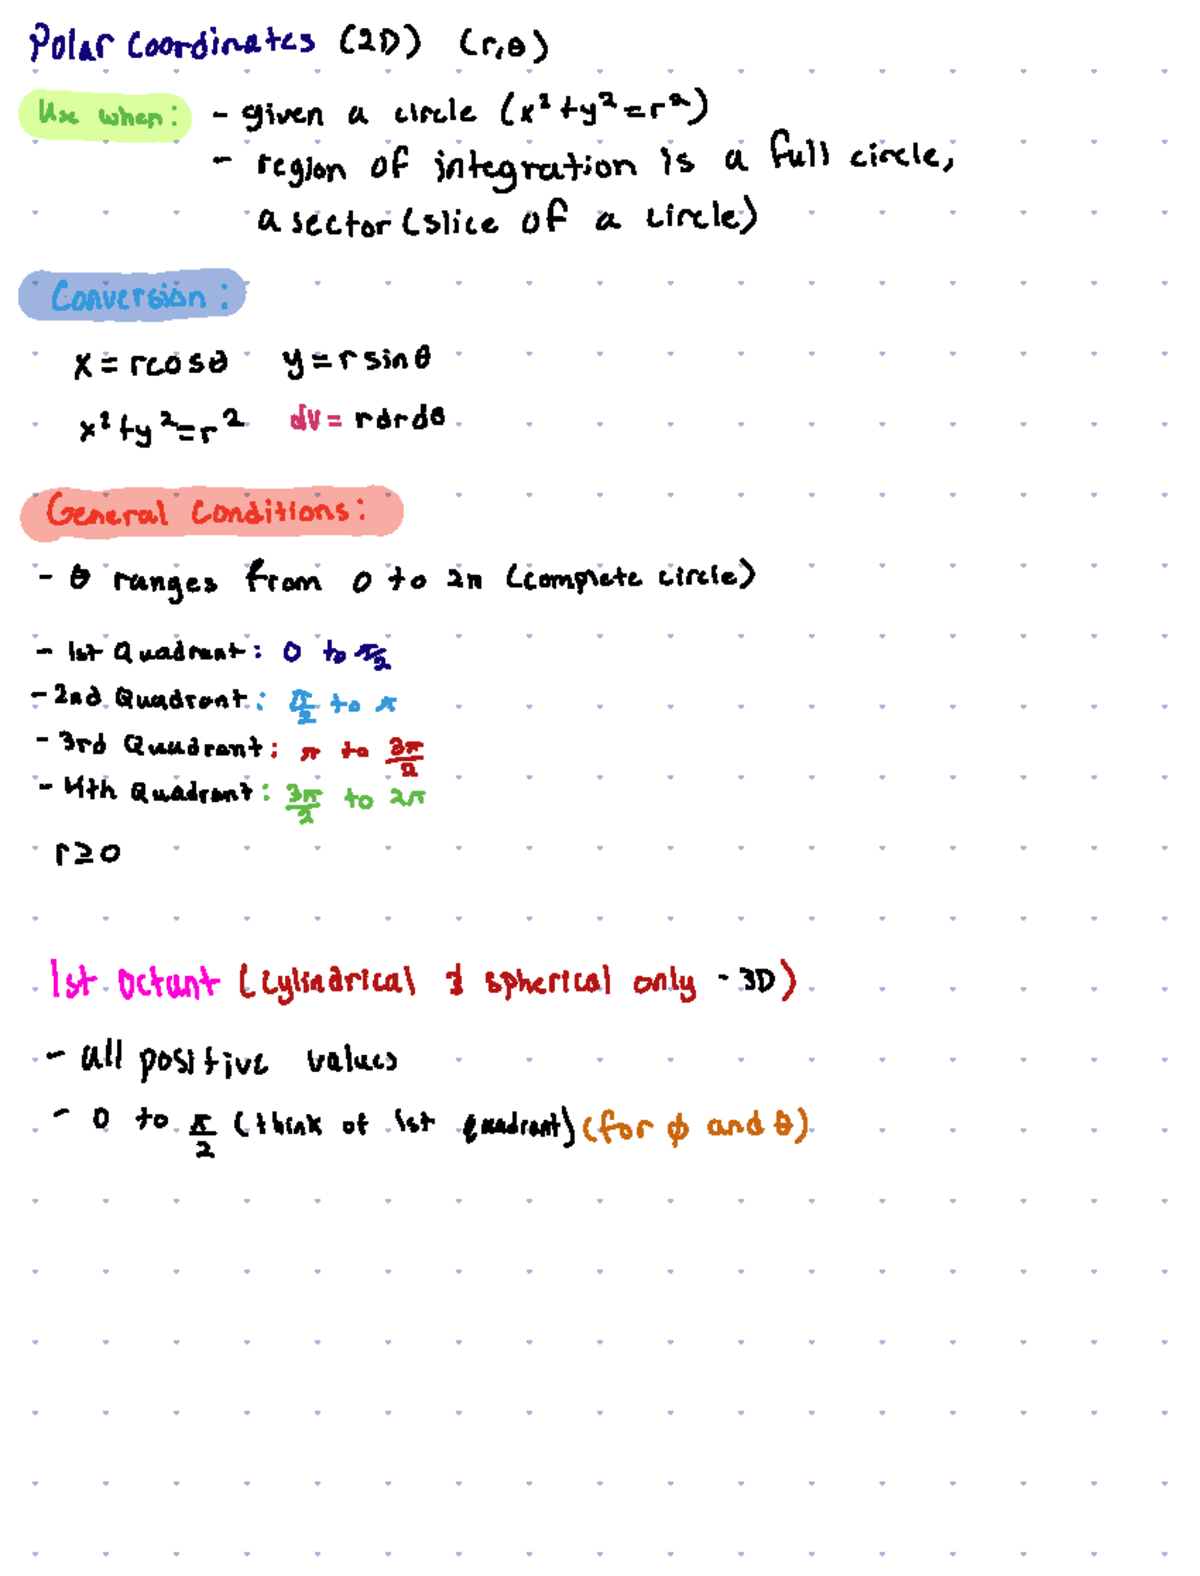 Polar Coordinates (2D) (r,θ)
Use when: - given a circle (x²+y²=r²)
- region of integration is a full circle,
a sector (slice of a circle)
Conversion:
x = rcosθ y = r sinθ
x²+y²=r² dV = rdrdθ
General Conditions:
- θ ranges from 0 to 2π (complete circle)
- 1st Quadrant: 0 to π/2
- 2nd Quadrant: π/2 to π
- 3rd Quadrant: π to 3π/2
- 4th Quadrant: 3π/2 to 2π
r≥0
1st Octant (cylindrical & spherical only - 3D)
- all positive values
- 0 to π/2 (think of 1st quadrant) (for φ and θ)